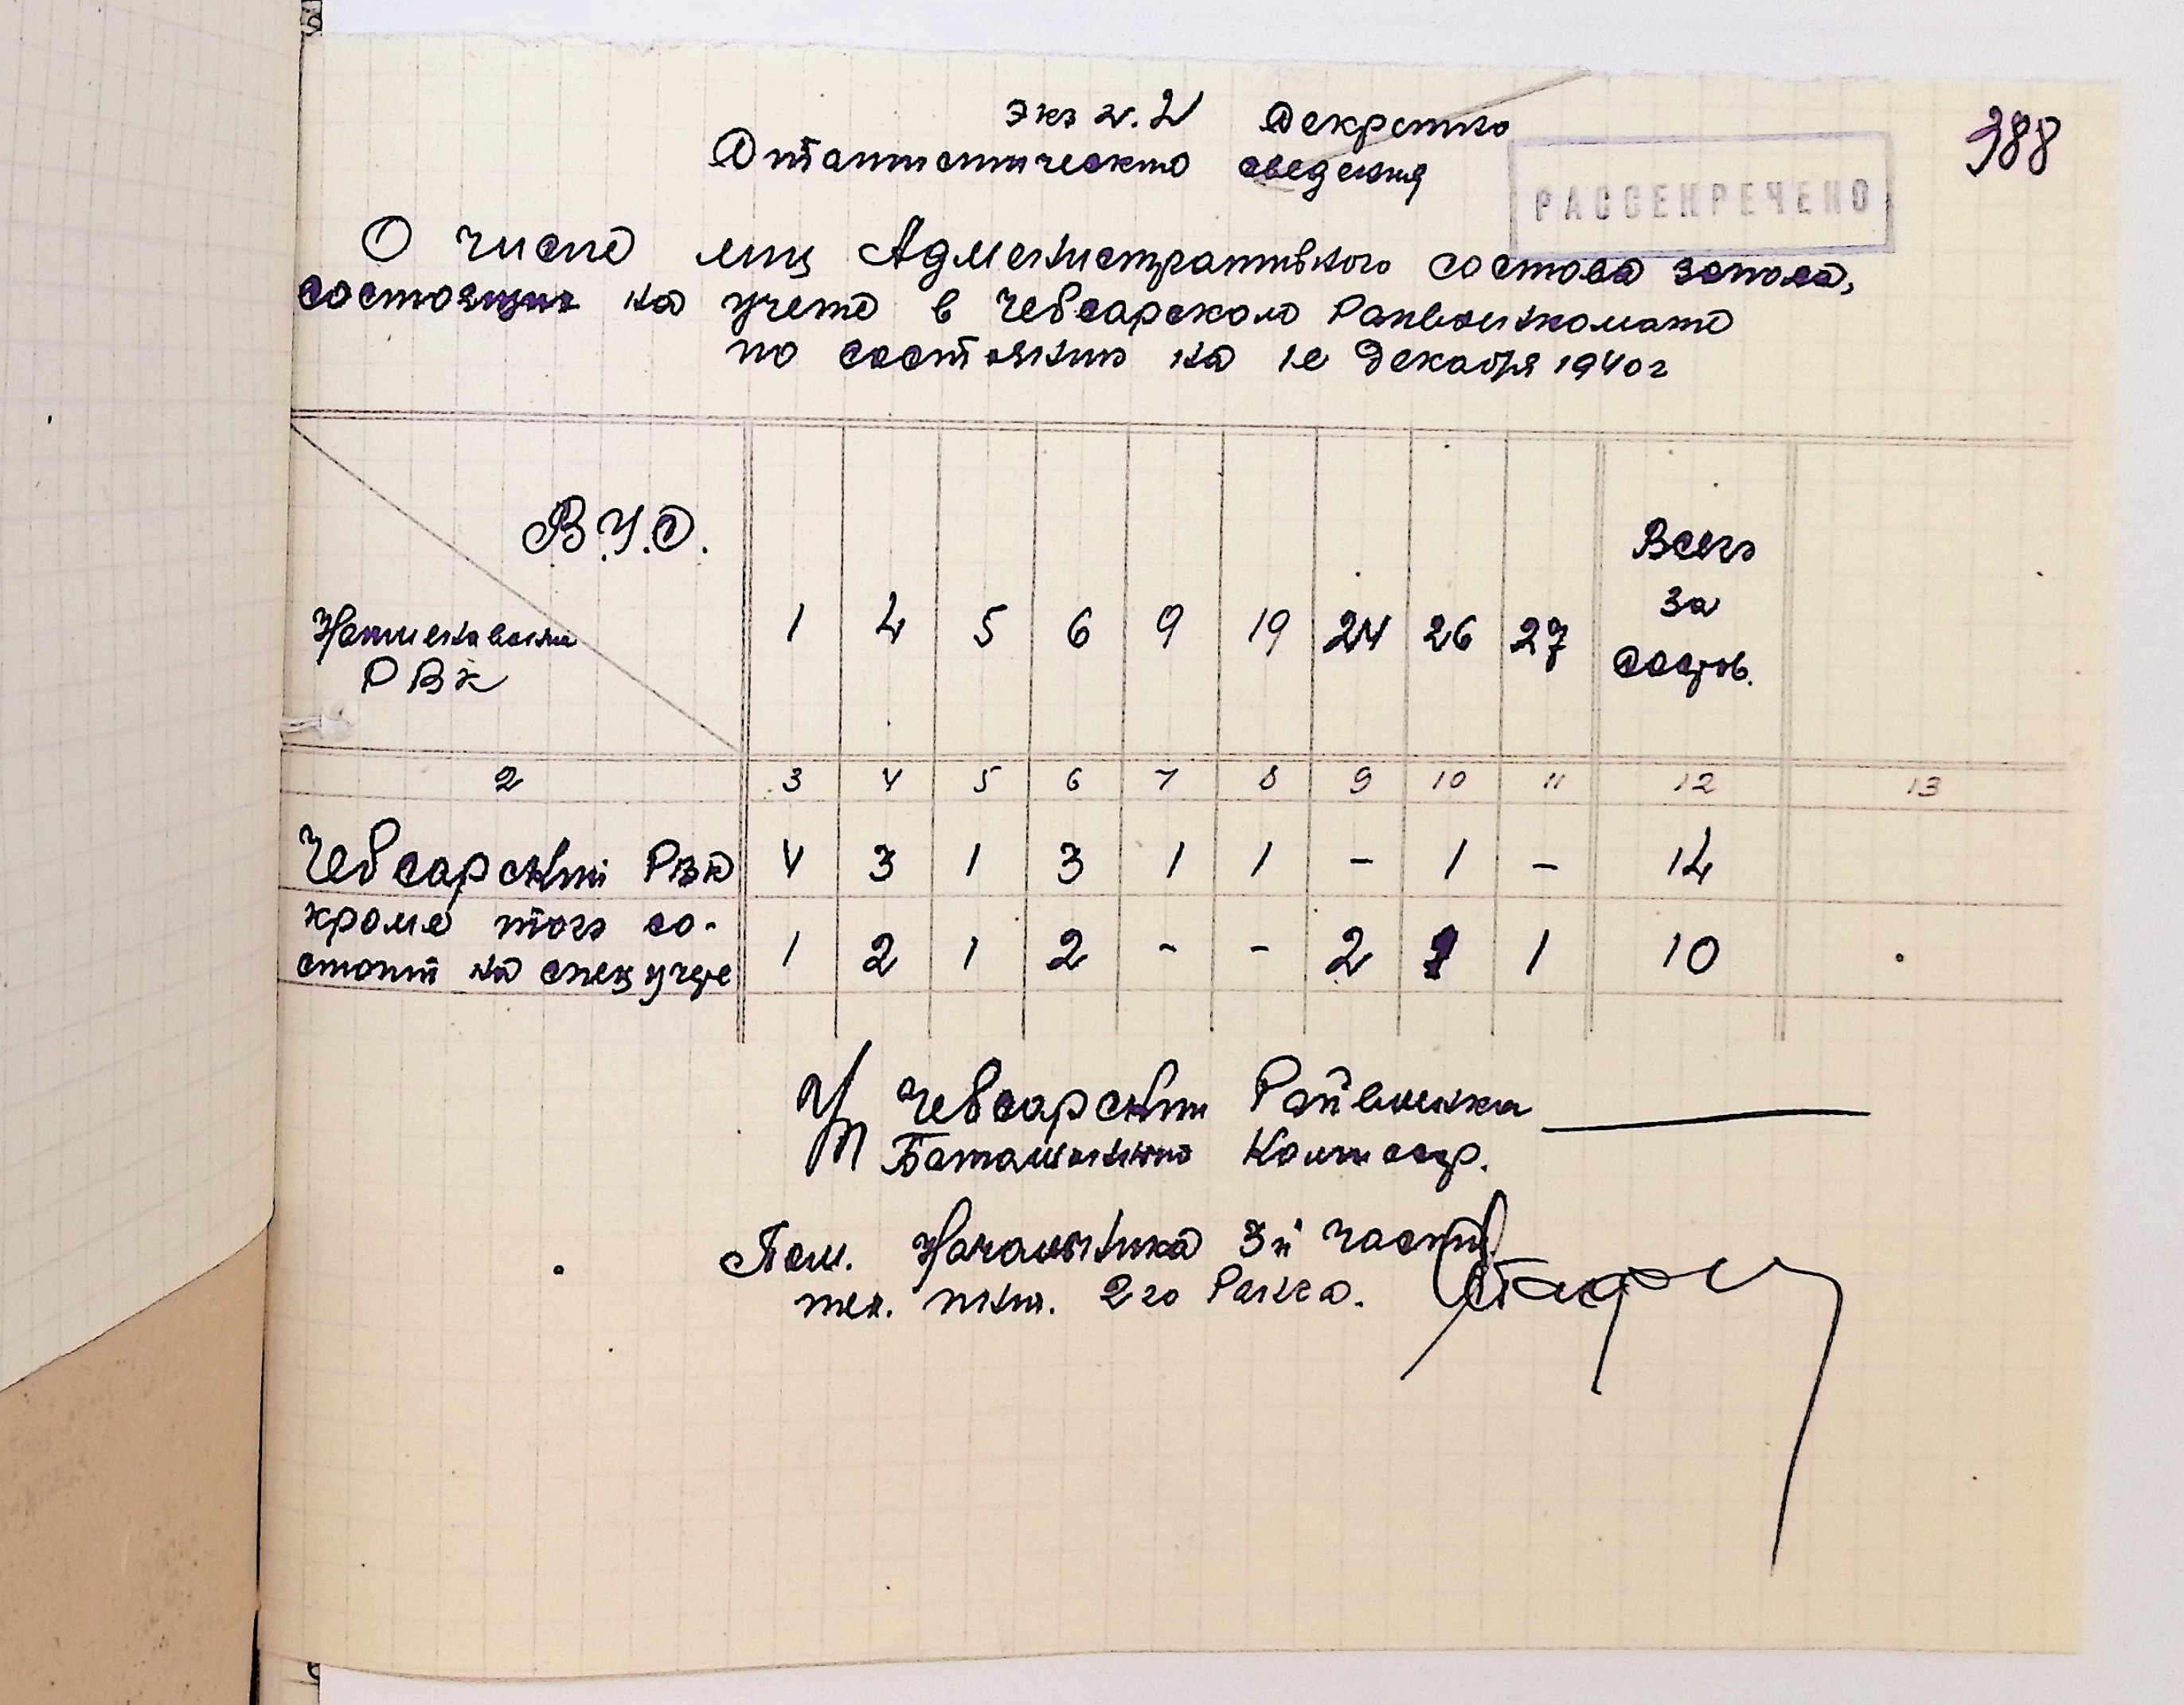 Экз №.2 Секретно
388
Статистическио сведения
РАССЕКРЕЧЕНО
О числе лиц Административного состава запаса,
состоящих на учете в Чебсарском Райвоенкомате
по состоянию на 1е декабря 1940г
В.У.С. 1 4 5 6 9 19 24 26 27 Всего за состав.
Наименования
РВК
2 3 4 5 6 7 8 9 10 11 12 13
Чебсарский РВК 4 3 1 3 1 1 - 1 - 14
кроме того со-
стоит на спец учете 1 2 1 2 - - 2 1 1 10
Чебсарский Райвоенком
Батальонный Комиссар.
Пом. Начальника 3й части
тех. инт. 2го Ранга.